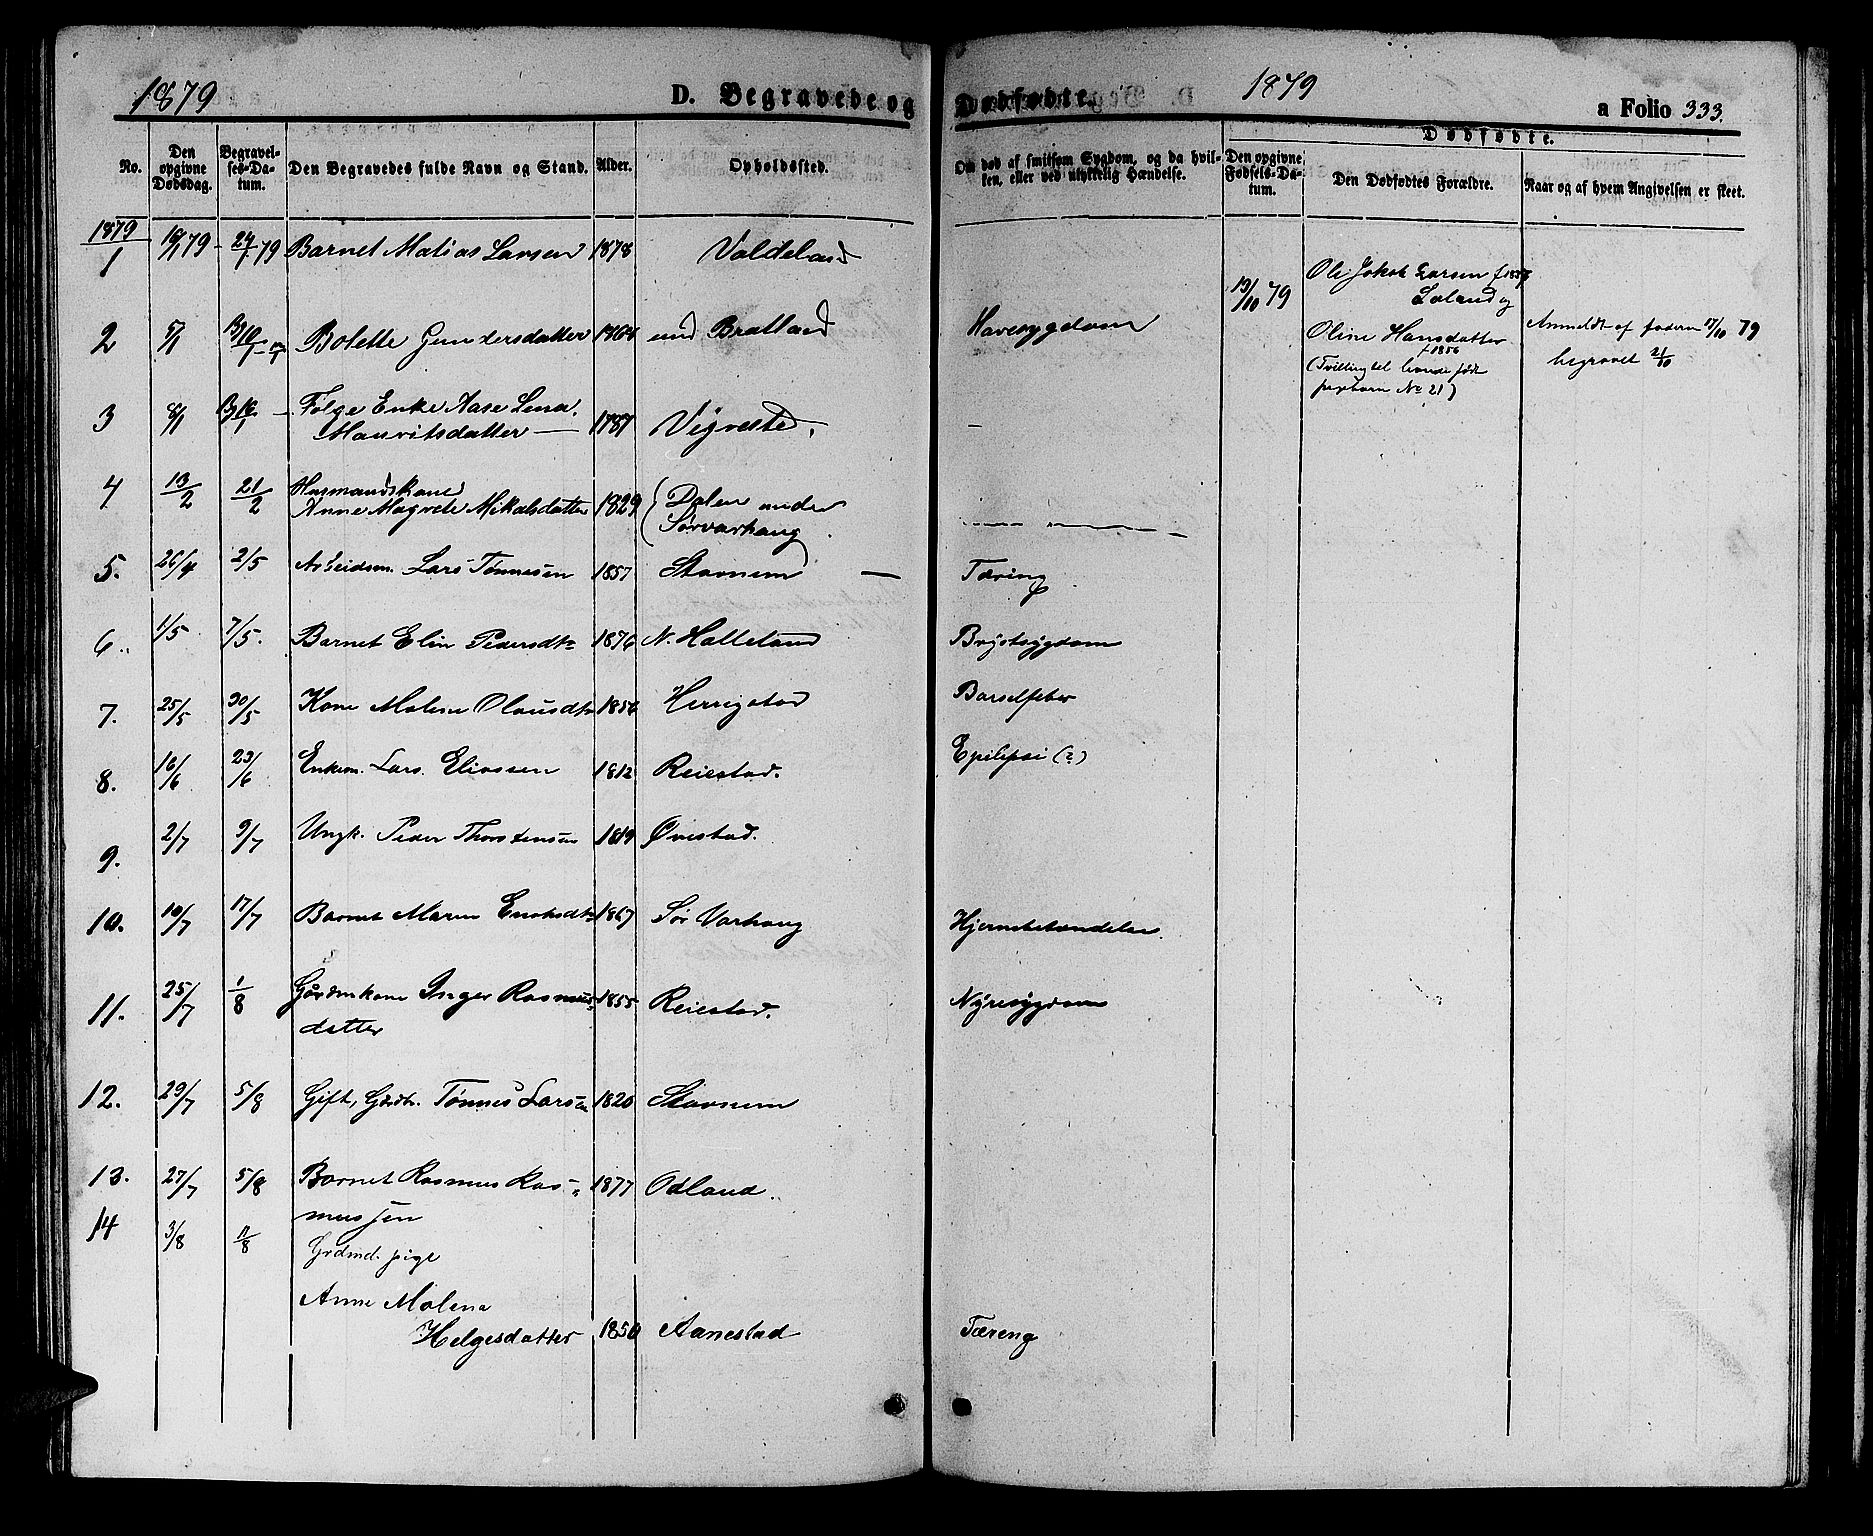 1879 D. Begravede og Dødfødte. 1879 a Folio 333.
No. Den opgivne Dødsdag. Begravelses-Datum. Den Begravedes fulde Navn og Stand. Alder. Opholdssted. Om død af smitsom Sygdom, og da hvilken, eller ved ulykkelig Hændelse. Den opgivne Fødsels-Datum. Dødfødte. Den Dødfødtes Forældre. Naar og af hvem Angivelsen er skeet.
1879
1 18/1 79 - 24/1 79 Barnet Matias Larsen 1878 Valdeland
13/10 79 Ole Jakob Larsen f 185
Loland og
2 5/1 Bolette Gundersdatter 18 und Bratland Havesygdom Oline Hansdatter Anmeldt af faderen 17/10 79
f 1856 begravet 21/10
(Tvilling til levende født
No 21)
3 8/1 Følge Enke Aase Lena
Mauritsdatter — 1787 Vigrestad. -
4 13/2 21/2 Husmandskone
Anne Magrete Mikalsdatter 1829 (Dalen under
Sørvarhaug
5. 26/4 2/5 Arbeidsm. Lars Tønnesen 1857 Stavnem — Tæring
6.. 1/5 7/5. Barnet Elin Pedersdtr 1876 N. Halleland Brystsygdom
7. 25/5 30/5 Kone Malene Olausdtr 1856 Herrigstad Barselfeber
8. 16/6 23/6 Enkem. Lars Eliassen 1812 Reiestad. Epilepsi (?)
9. 2/7 9/7 Ungk. Peder Thorstensen 1819 Øvestad.
10. 10/7 17/7 Barnet Maren Enoksdtr 1867 Sør Varhaug Hjernebetændelse.
11. 25/7 1/8 Gårdmkone Inger Rasmus-
datter 1855 Reiestad. Nyresygdom
12. 29/7 5/8 Gift, Gårdbr. Tønnes Larsen 1820 Stavnem
13. 27/7 5/8 Barnet Rasmus Ras-
mussen 1877 Odland.
14 3/8 11/8 Grdmd. pige
Anne Malena
Helgesdatter 1850 Aanestad Tæreng